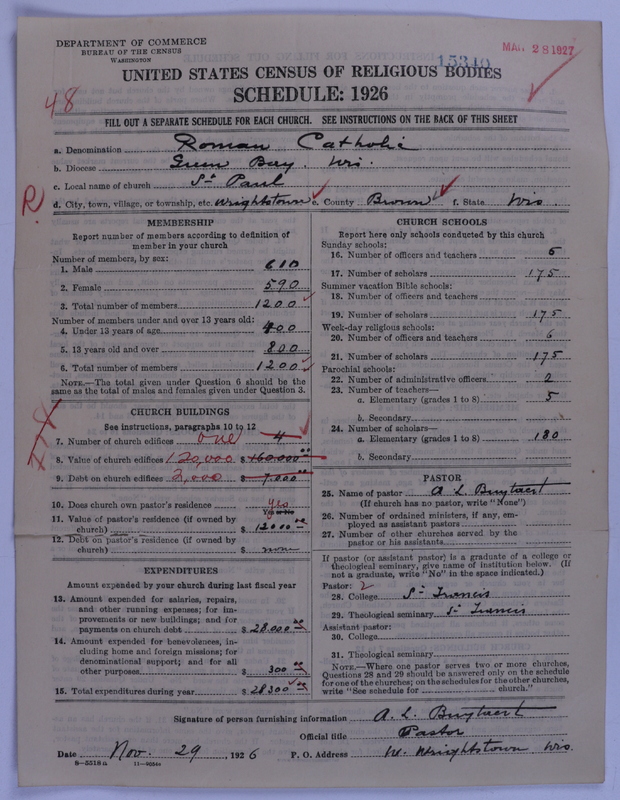 DEPARTMENT OF COMMERCE
BUREAU OF THE CENSUS
WASHINGTON
15340
MAR 28 1927
UNITED STATES CENSUS OF RELIGIOUS BODIES
SCHEDULE: 1926
48
FILL OUT A SEPARATE SCHEDULE FOR EACH CHURCH. SEE INSTRUCTIONS ON THE BACK OF THIS SHEET
a. Denomination Roman Catholic
b. Diocese Green Bay, Wis.
c. Local name of church St Paul
R
d. City, town, village, or township, etc. Wrightstown e. County Brown f. State Wis.
MEMBERSHIP
Report number of members according to definition of
member in your church
Number of members, by sex:
1. Male 610
2. Female 590
3. Total number of members 1200
Number of members under and over 13 years old:
4. Under 13 years of age 400
5. 13 years old and over 800
6. Total number of members 1200
NOTE.—The total given under Question 6 should be the
same as the total of males and females given under Question 3.
CHURCH BUILDINGS
See instructions, paragraphs 10 to 12
7. Number of church edifices one 4
8. Value of church edifices 120,000 $ 160.000 00
9. Debt on church edifices 2,000 $ 7.000 00
10. Does church own pastor's residence yes
Yes or No
11. Value of pastor's residence (if owned by
church) $ 12000 00
12. Debt on pastor's residence (if owned by
church) $ none
EXPENDITURES
Amount expended by your church during last fiscal year
13. Amount expended for salaries, repairs,
and other running expenses; for im-
provements or new buildings; and for
payments on church debt $ 28.000 00
14. Amount expended for benevolences, in-
cluding home and foreign missions; for
denominational support; and for all
other purposes $ 300 00
15. Total expenditures during year $ 28300 00
CHURCH SCHOOLS
Report here only schools conducted by this church
Sunday schools:
16. Number of officers and teachers 6
17. Number of scholars 175
Summer vacation Bible schools:
18. Number of officers and teachers
19. Number of scholars 175
Week-day religious schools:
20. Number of officers and teachers 6
21. Number of scholars 175
Parochial schools:
22. Number of administrative officers 2
23. Number of teachers—
a. Elementary (grades 1 to 8) 5
b. Secondary
24. Number of scholars—
a. Elementary (grades 1 to 8) 180
b. Secondary
PASTOR
25. Name of pastor A L Buytaert
(If church has no pastor, write "None")
26. Number of ordained ministers, if any, em-
ployed as assistant pastors
27. Number of other churches served by the
pastor or his assistants
If pastor (or assistant pastor) is a graduate of a college or
theological seminary, give name of institution below. (If
not a graduate, write "No" in the space indicated.)
Pastor: 2
28. College St Francis
29. Theological seminary St Francis
Assistant pastor:
30. College
31. Theological seminary
NOTE.—Where one pastor serves two or more churches,
Questions 28 and 29 should be answered only on the schedule
for one of the churches; on the schedules for the other churches,
write "See schedule for church."
Signature of person furnishing information A. L. Buytaert
Official title Pastor
Date Nov. 29, 1926 P. O. Address W. Wrightstown Wis.
8—5518a 11—9054a